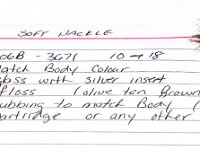 SOFT HACKLE
06B - 3671 10 → 18
atch Body Colour
bss with silver insert
floss (olive tan Brown
ubbing to match Body (
artridge or any other